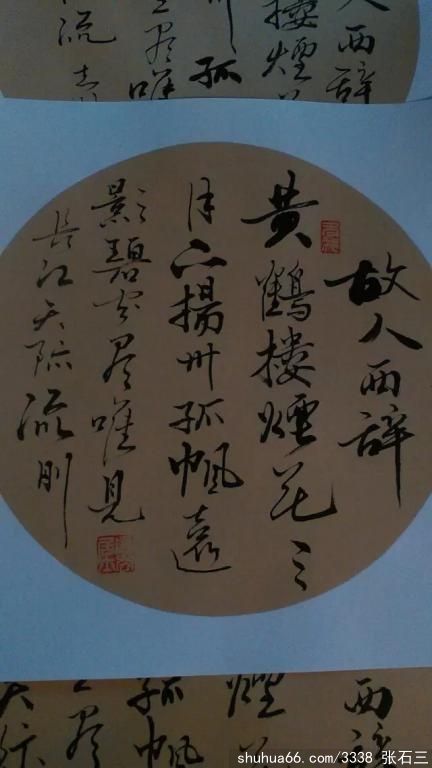 人西辞
楼煙
州孤
尽唯
流
故人西辞
黄鶴楼煙花三
月下揚州孤帆遠
影碧空尽唯見
長江天际流刚
西辞
煙
孤帆
尽
天际
shuhua66.com/3338 张石三